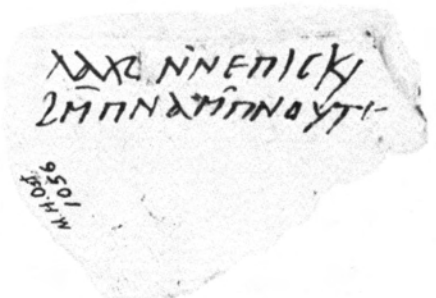 ⲗⲁⲭⲥ ⲛ̄ⲛⲉⲡⲓⲥⲕ/
ϩⲙ̄ⲡⲛⲁⲙ̄ⲡⲛⲟⲩⲧⲉ
M.H. Ost.
1056